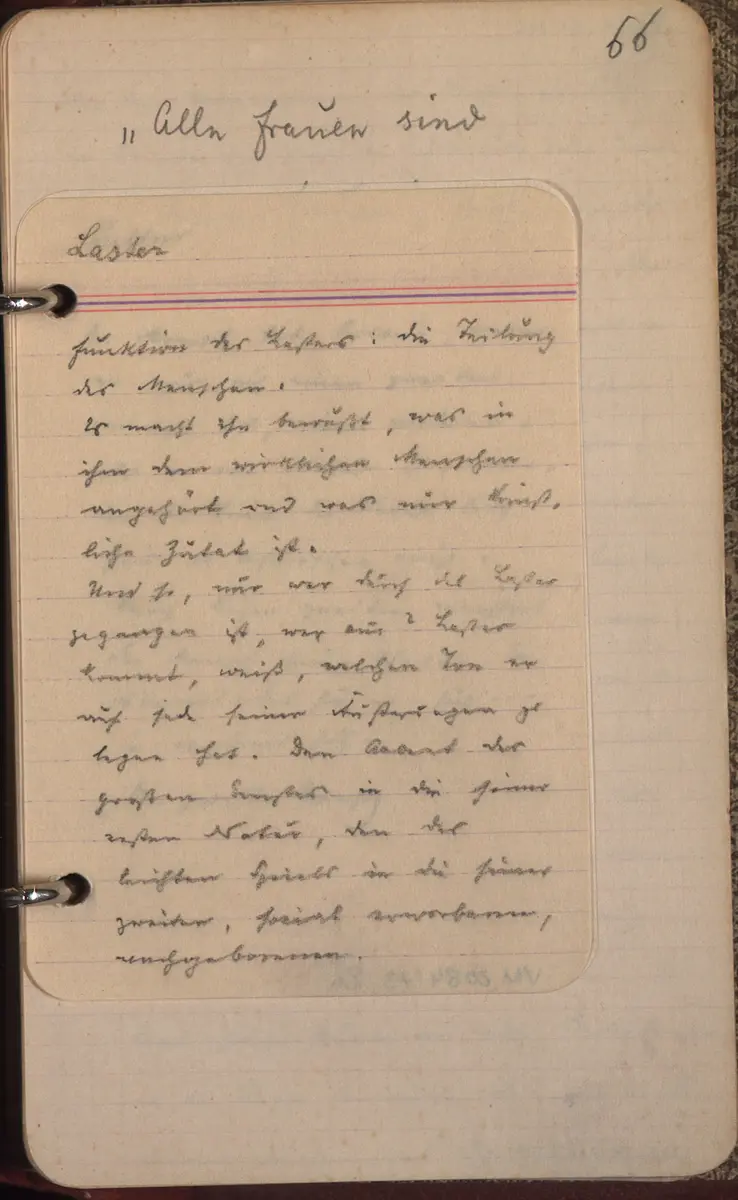 66
„Alle Frauen sind
Laster
Funktion des Lasters: die Teilung
des Menschen.
Es macht ihn bewußt, was in
ihm dem wirklichen Menschen
angehört und was nur künst-
liche Zutat ist.
Und so, nur wer durch das Laster
gegangen ist, wer aus ? Laster
kommt, weiß, welchen Ton er
auf jede seiner Äußerungen zu
legen hat. Den Accent des
großen Ernstes in die seiner
ersten Natur, den des
leichten Spiels in die seiner
zweiten, sozial erworbenen,
nachgeborenen.